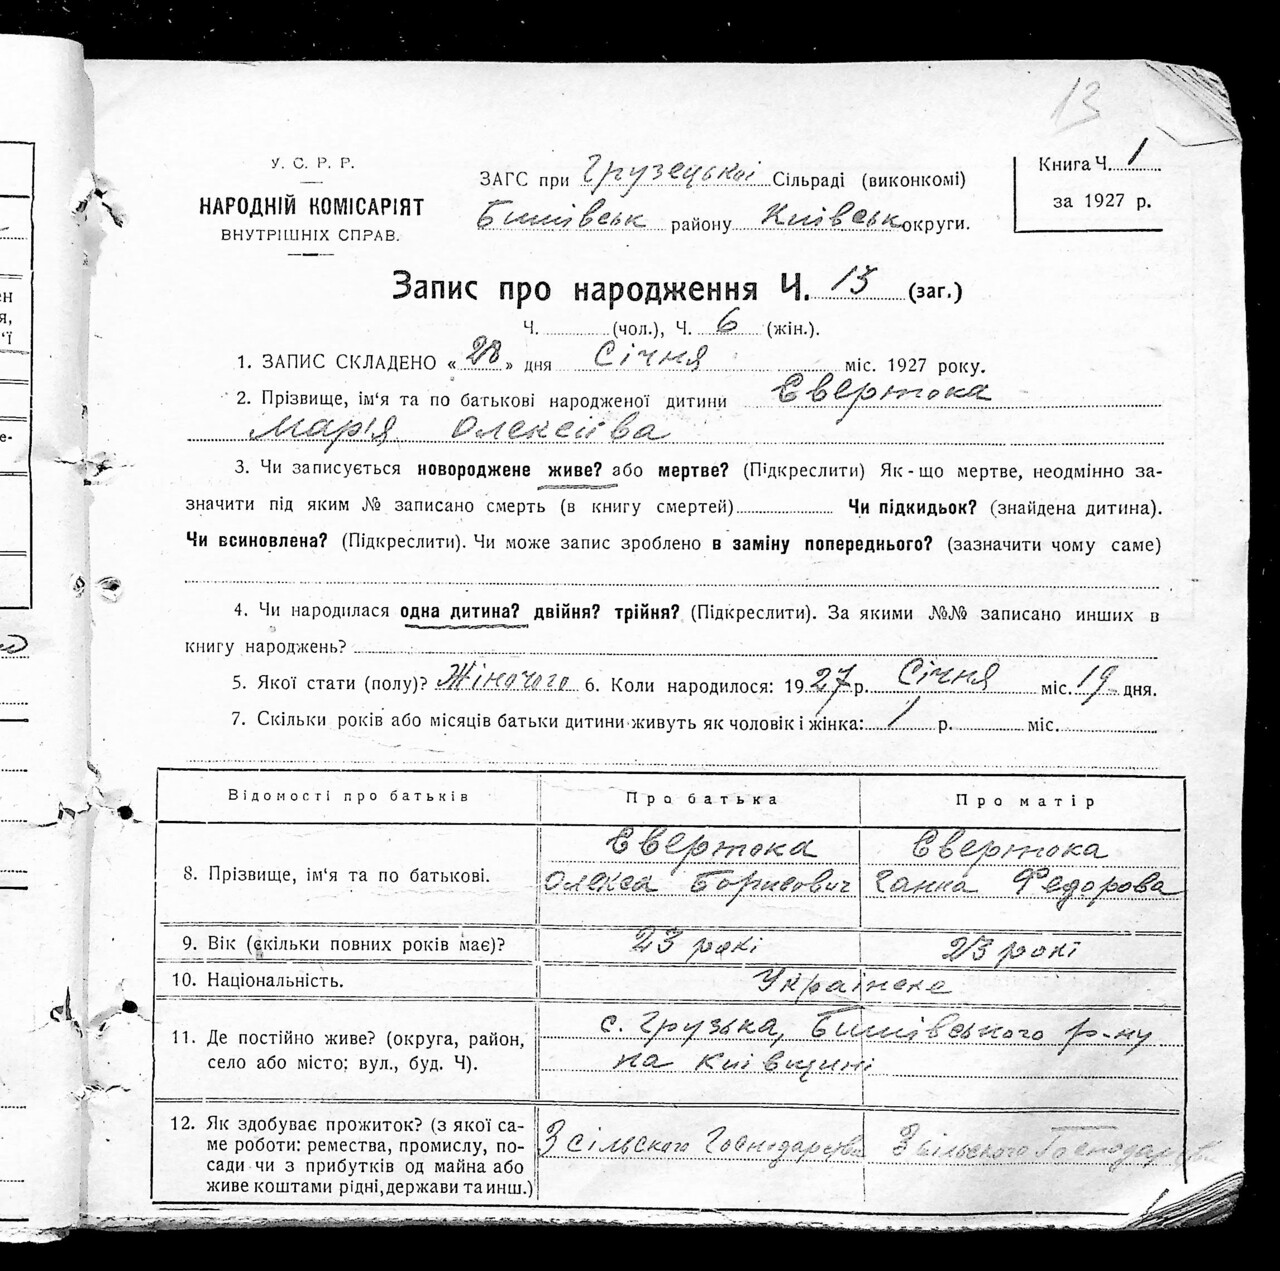 13
У. С. Р. Р.
НАРОДНІЙ КОМІСАРІЯТ
ВНУТРІШНІХ СПРАВ.
ЗАГС при Грузецької Сільраді (виконкомі)
Бишівськ району Київськ округи.
Книга Ч. 1
за 1927 р.
Запис про народження Ч. 13 (заг.)
Ч. (чол.), Ч. 6 (жін.).
1. ЗАПИС СКЛАДЕНО « 28 » дня Січня міс. 1927 року.
2. Прізвище, ім'я та по батькові народженої дитини Євертока
Марія Олексіїва
3. Чи записується новороджене живе? або мертве? (Підкреслити) Як-що мертве, неодмінно за-
значити під яким № записано смерть (в книгу смертей) Чи підкидьок? (знайдена дитина).
Чи всиновлена? (Підкреслити). Чи може запис зроблено в заміну попереднього? (зазначити чому саме)
4. Чи народилася одна дитина? двійня? трійня? (Підкреслити). За якими №№ записано инших в
книгу народжень?
5. Якої стати (полу)? Жіночого 6. Коли народилося: 1927 р. Січня міс. 19 дня.
7. Скільки років або місяців батьки дитини живуть як чоловік і жінка: 1 р. міс.
Відомості про батьків Про батька Про матір
8. Прізвище, ім'я та по батькові.
Євертока
Олекса Борисович
Євертока
Ганна Федорова
9. Вік (скільки повних років має)? 23 рокі 23 рокі
10. Національність. Українське
11. Де постійно живе? (округа, район,
село або місто; вул., буд. Ч).
с. Грузька, Бишівського р-ну
на Київщині
12. Як здобуває прожиток? (з якої са-
ме роботи: ремества, промислу, по-
сади чи з прибутків од майна або
живе коштами рідні, держави та инш.)
З сільского Господарства
З сільського Господарства